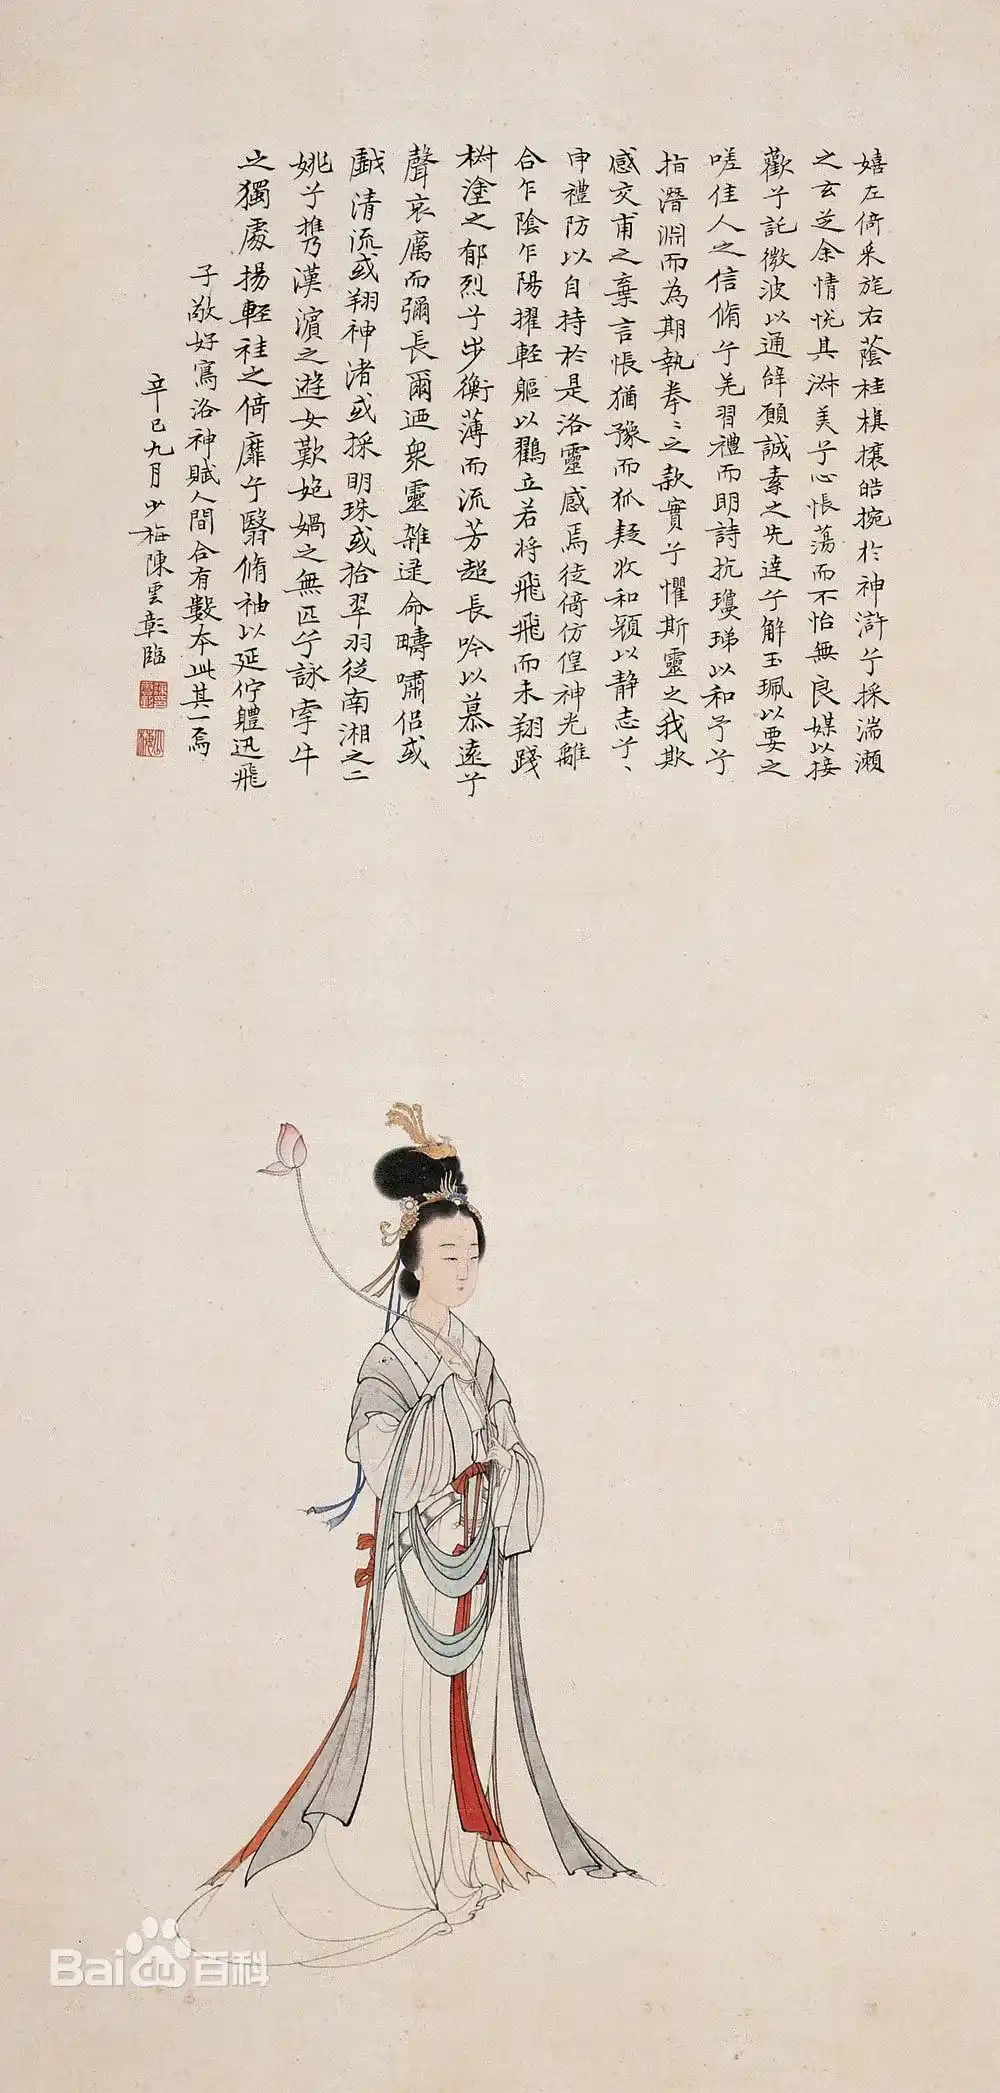 嬉左倚采旄右蔭桂旗攘皓捥於神滸兮採湍瀨
之玄芝余情悅其淋美兮心悵蕩而不怡無良媒以接
歡兮託微波以通辞願誠素之先達兮解玉珮以要之
嗟佳人之信脩兮羌習禮而明詩抗瓊珶以和予兮
指潛淵而為期執拳〻之款實兮懼斯靈之我欺
感交甫之棄言悵猶豫而狐疑收和顏以静志兮〻
申禮防以自持於是洛靈感焉徒倚仿偟神光離
合乍陰乍陽擢輕軀以鸖立若將飛飛而未翔踐
椒塗之郁烈兮步衡薄而流芳超長吟以慕遠兮
聲哀厲而彌長爾迺眾靈雜逮命疇嘯侶或
戲清流或翔神渚或採明珠或拾翠羽從南湘之二
姚兮携漢濱之遊女歎媱媧之無匹兮詠牽牛
之獨處揚輕袿之倚靡兮翳脩袖以延佇軆迅飛
子敬好寫洛神賦人間合有數本此其一焉
辛巳九月少梅陳雲彰臨
Baidu百科